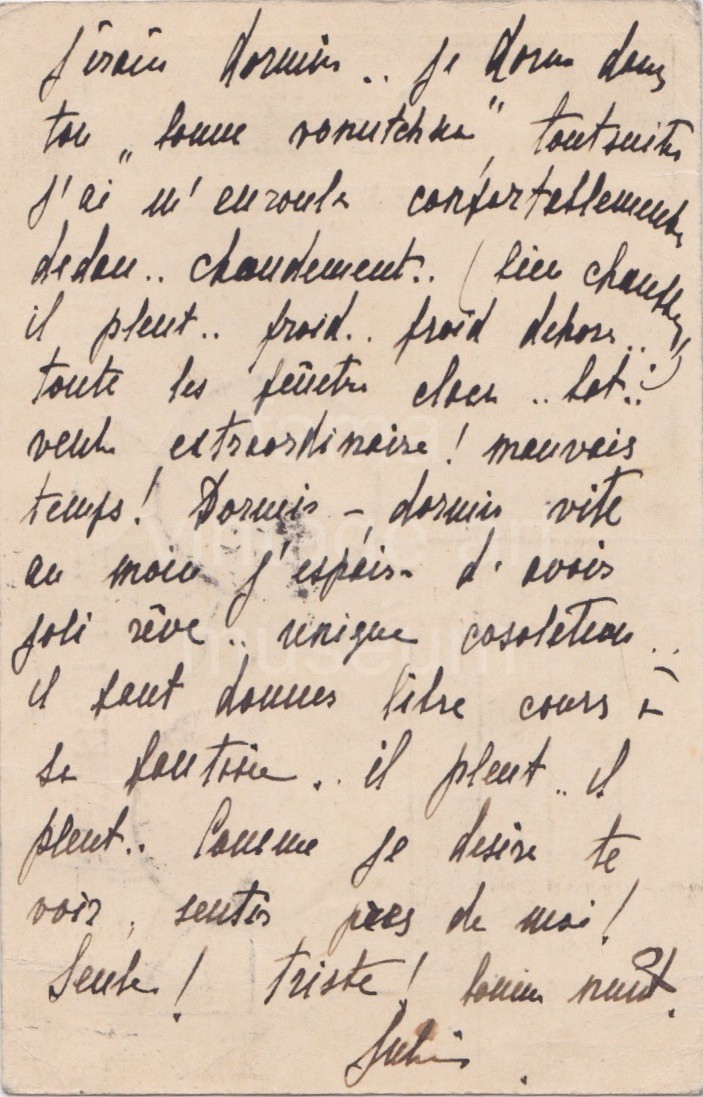 j'irais dormir.. je dors dans
ton „bonne vanutchka" toutsuite
j'ai m'enroula confortablement
dedan.. chaudement.. (bien chauffée)
il pleut.. froid.. froid dehors..
toute les fenêtre closes ..
vent extraordinaire! mauvais
temps! Dormir – dormir vite
au moin j'espère d'avoir
joli rêve.. unique cosolation..
il faut donner libre cours à
sa fantasie.. il pleut.. il
pleut.. Comme je desire te
voir, sentir près de moi!
Seule! Triste! bonne nuit.
tama
vintage art
museum